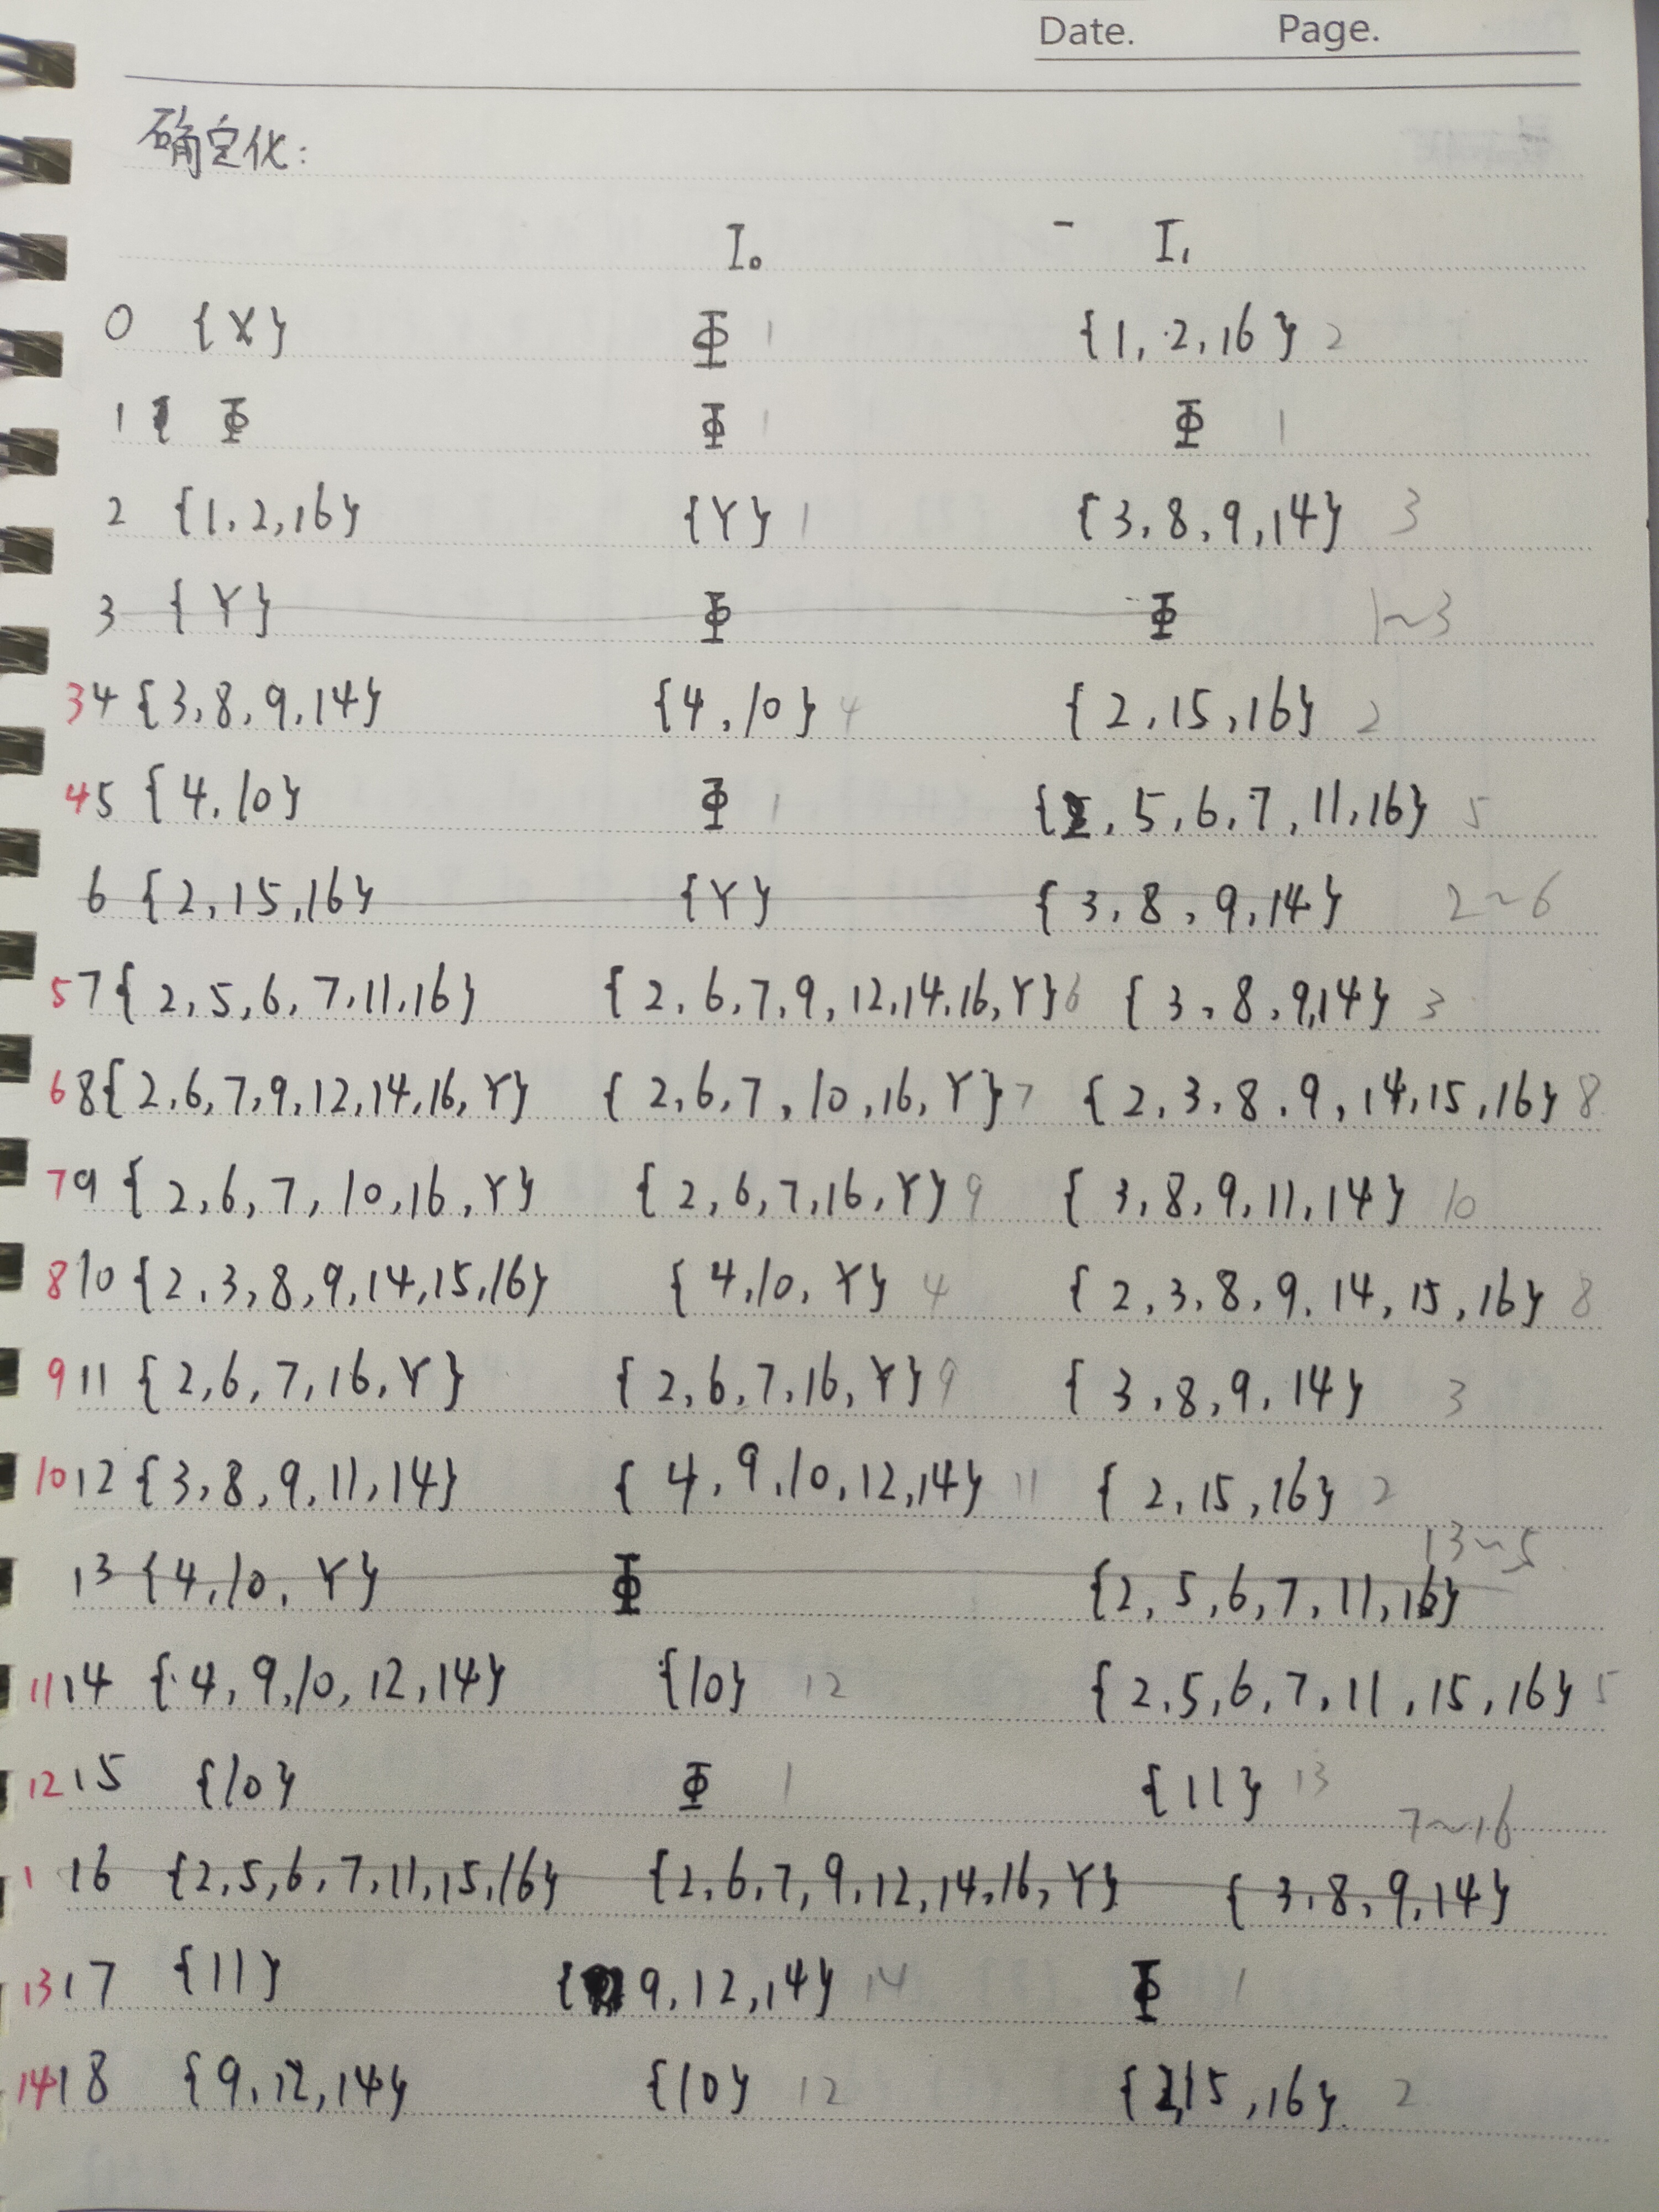 Date. Page.
确定化:
I₀ - I₁
0 {X} Φ 1 {1,2,16} 2
1 Φ Φ 1 Φ 1
2 {1,2,16} {Y} 1 {3,8,9,14} 3
3 {Y} Φ Φ 1~3
3 4 {3,8,9,14} {4,10} 4 {2,15,16} 2
4 5 {4,10} Φ 1 {2,5,6,7,11,16} 5
6 {2,15,16} {Y} {3,8,9,14} 2~6
5 7 {2,5,6,7,11,16} {2,6,7,9,12,14,16,Y} 6 {3,8,9,14} 3
6 8 {2,6,7,9,12,14,16,Y} {2,6,7,10,16,Y} 7 {2,3,8,9,14,15,16} 8
7 9 {2,6,7,10,16,Y} {2,6,7,16,Y} 9 {3,8,9,11,14} 10
8 10 {2,3,8,9,14,15,16} {4,10,Y} 4 {2,3,8,9,14,15,16} 8
9 11 {2,6,7,16,Y} {2,6,7,16,Y} 9 {3,8,9,14} 3
10 12 {3,8,9,11,14} {4,9,10,12,14} 11 {2,15,16} 2
13 {4,10,Y} Φ {2,5,6,7,11,16} 13~5
11 14 {4,9,10,12,14} {10} 12 {2,5,6,7,11,15,16} 5
12 15 {10} Φ 1 {11} 13
1 16 {2,5,6,7,11,15,16} {2,6,7,9,12,14,16,Y} {3,8,9,14} 7~16
13 17 {11} {9,12,14} 14 Φ 1
14 18 {9,12,14} {10} 12 {2,15,16} 2